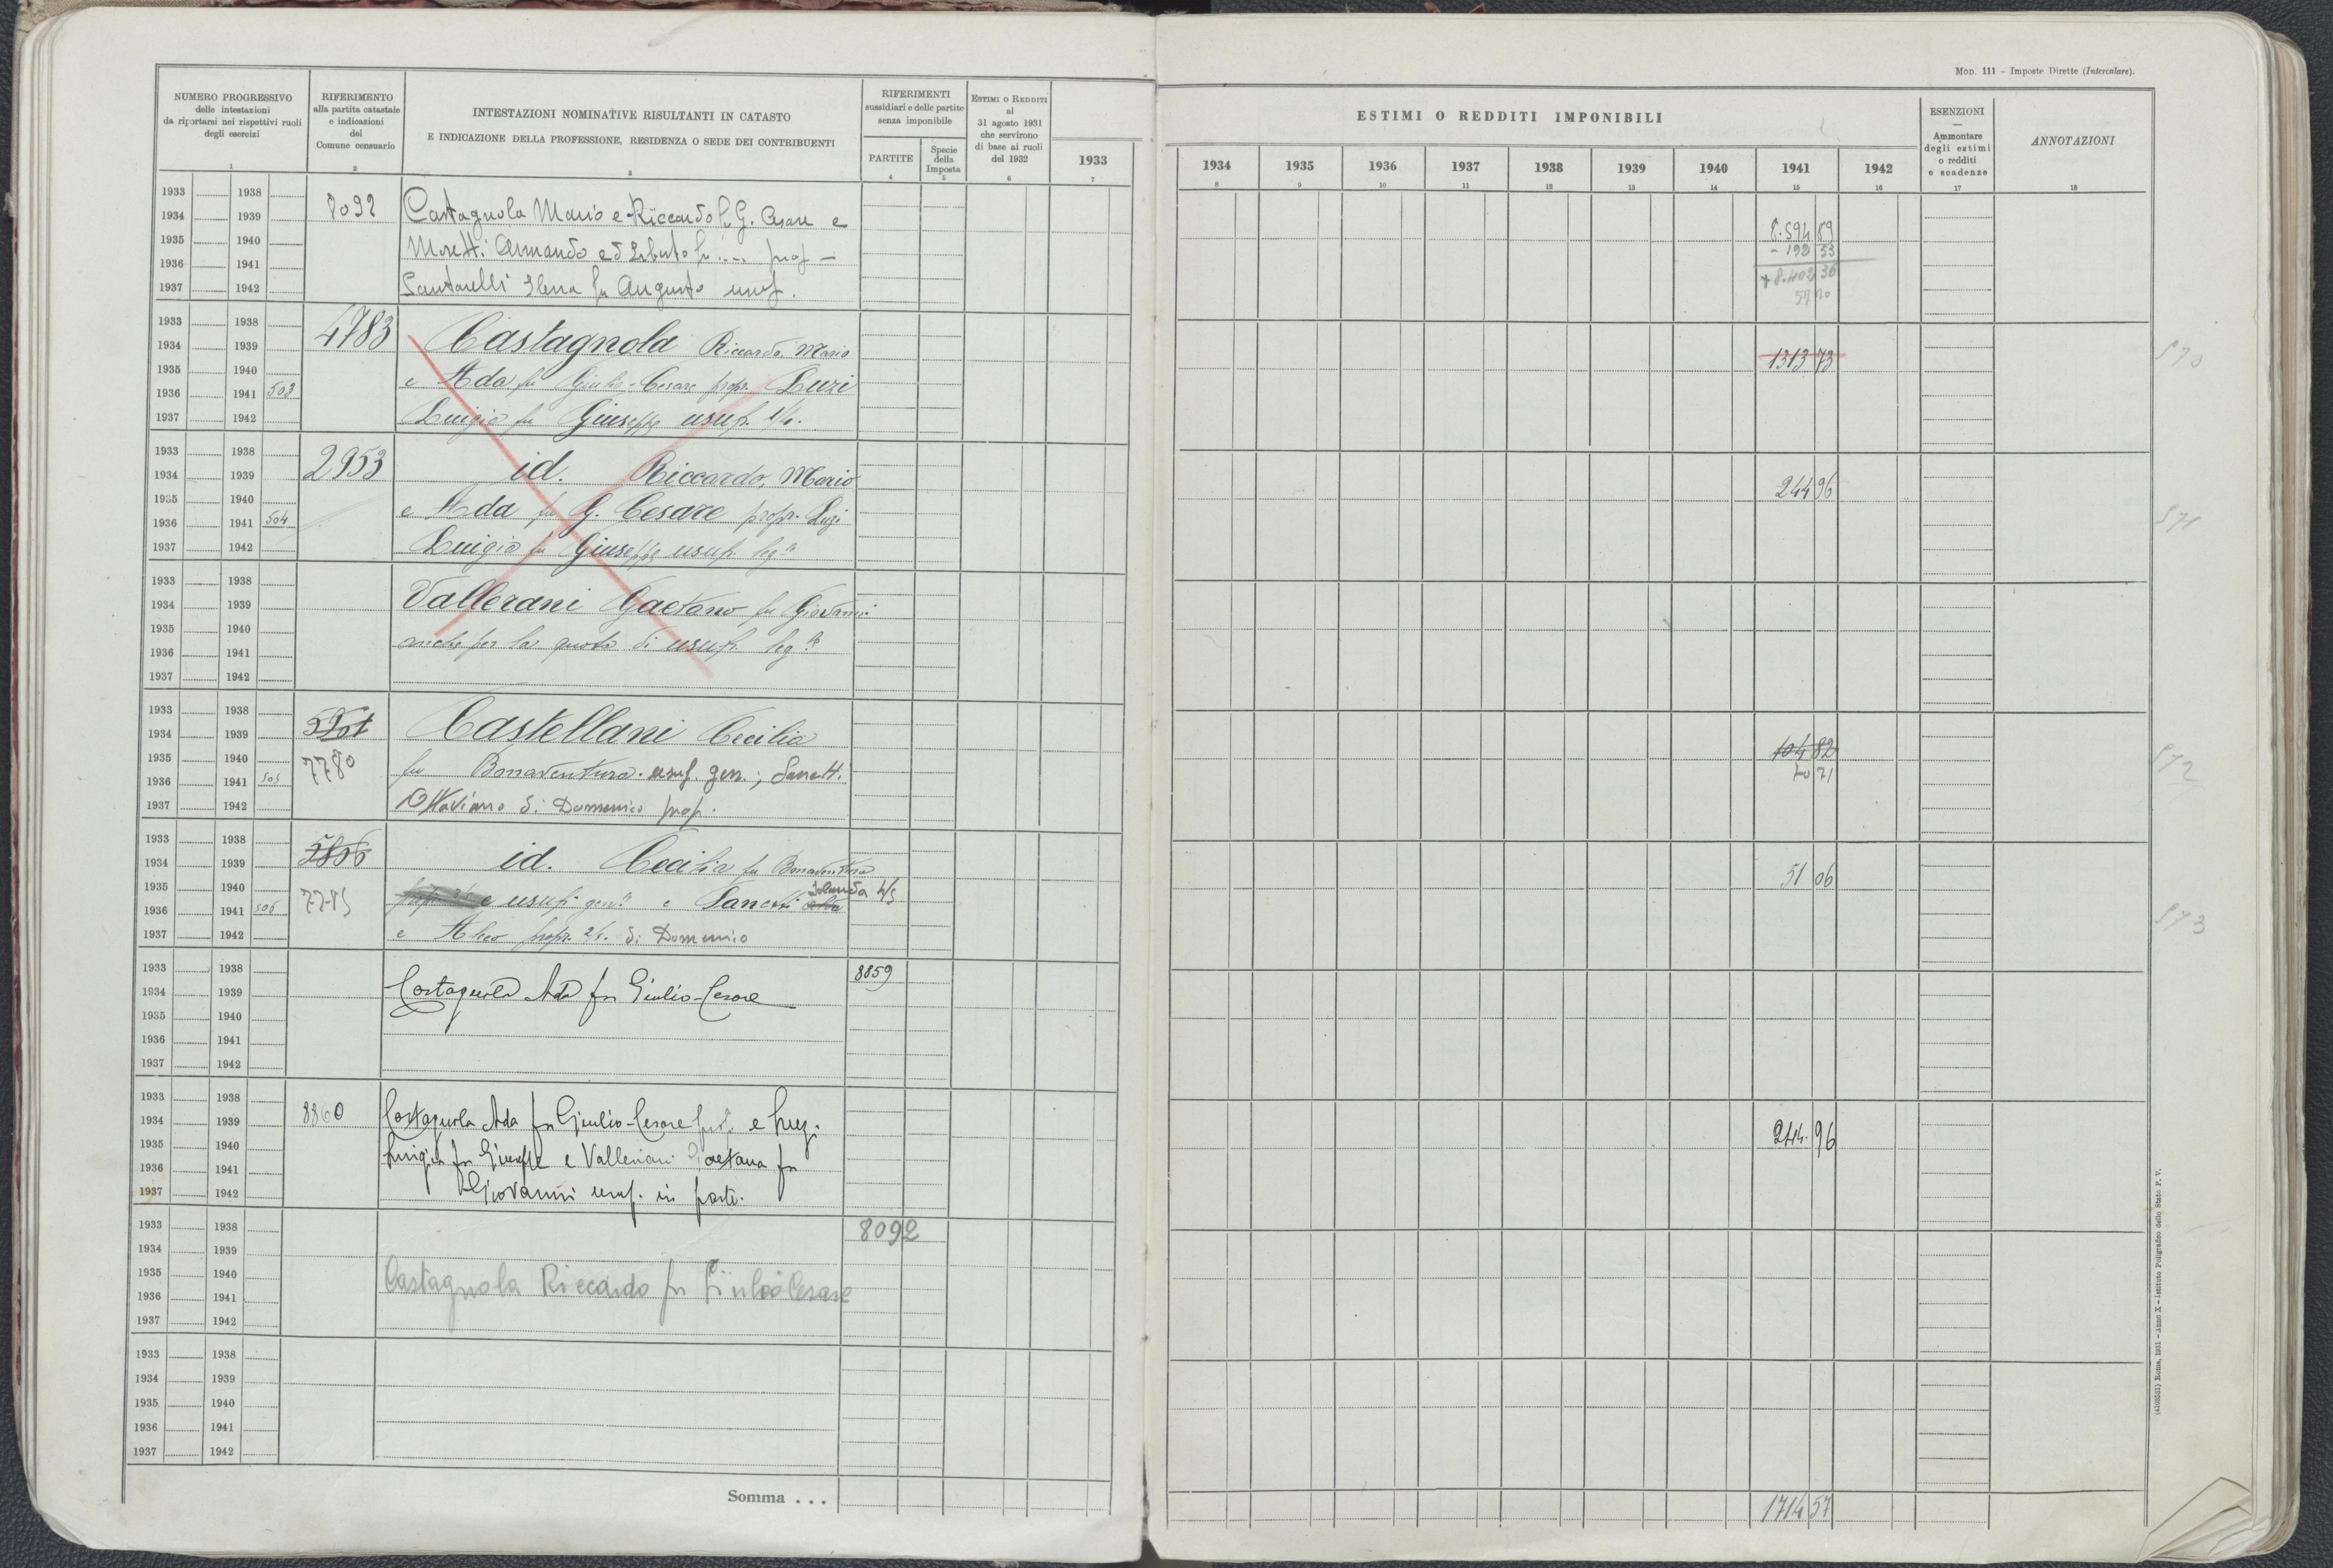 Mod. 111 - Imposte Dirette (Intercalare).
NUMERO PROGRESSIVO
delle intestazioni
da riportarsi nei rispettivi ruoli
degli esercizi
1
RIFERIMENTO
alla partita catastale
e indicazioni
del
Comune censuario
2
INTESTAZIONI NOMINATIVE RISULTANTI IN CATASTO
E INDICAZIONE DELLA PROFESSIONE, RESIDENZA O SEDE DEI CONTRIBUENTI
3
RIFERIMENTI
sussidiari e delle partite
senza imponibile
PARTITE
4
Specie
della
Imposta
5
ESTIMI O REDDITI
al
31 agosto 1931
che servirono
di base ai ruoli
del 1932
6
1933
7
ESTIMI O REDDITI IMPONIBILI
1934 1935 1936 1937 1938 1939 1940 1941 1942
8 9 10 11 12 13 14 15 16
ESENZIONI
—
Ammontare
degli estimi
o redditi
e scadenze
17
ANNOTAZIONI
18
1933 1938
1934 1939 8092 Castagnola Mario e Riccardo fu G. Cesare e
1935 1940 Moretti Armando ed fu .... prop - 8.594 89
1936 1941 Santarelli Elena fu Augusto usuf. - 192 53
1937 1942 8.402 36
1933 1938 4783 Castagnola Riccardo, Mario
1934 1939 1313 73 570
1935 1940 e Ada fu Giulio-Cesare propr. Luzi
1936 1941 503
1937 1942 Luigia fu Giuseppe usuf.
1933 1938
1934 1939 2953 id. Riccardo, Mario 244 96
1935 1940
1936 1941 504 e Ada fu G. Cesare propr. Luzi 571
1937 1942 Luigia fu Giuseppe usuf. leg.
1933 1938
1934 1939 Vallerani Gaetano fu Giovanni
1935 1940 anche per la quota di usuf. leg.
1936 1941
1937 1942
1933 1938
1934 1939 Castellani Cecilia 104 82
1935 1940 7780 fu Bonaventura usuf. gen.; Sanetti 572
1936 1941 505
1937 1942 Ottaviano di Domenico prop.
1933 1938 5806
1934 1939 id. Cecilia fu Bonaventura 51 06
1935 1940 Iolanda
1936 1941 506 e usuf. e Sanetti 573
1937 1942 e propr. 2/5. di Domenico
1933 1938 8859
1934 1939 Castagnola Ada fu Giulio-Cesare
1935 1940
1936 1941
1937 1942
1933 1938
1934 1939 8860 Castagnola Ada fu Giulio-Cesare e
1935 1940 Luigia fu Giuseppe e Valleriani Gaetana fu 244. 96
1936 1941
1937 1942 Giovanni usuf. in parte.
1933 1938 8092
1934 1939
1935 1940 Castagnola Riccardo fu Giulio Cesare
1936 1941
1937 1942
1933 1938
1934 1939
1935 1940
1936 1941
1937 1942
Somma . . . 1714 57
(4103531) Roma, 1931 - Anno X - Istituto Poligrafico dello Stato P. V.